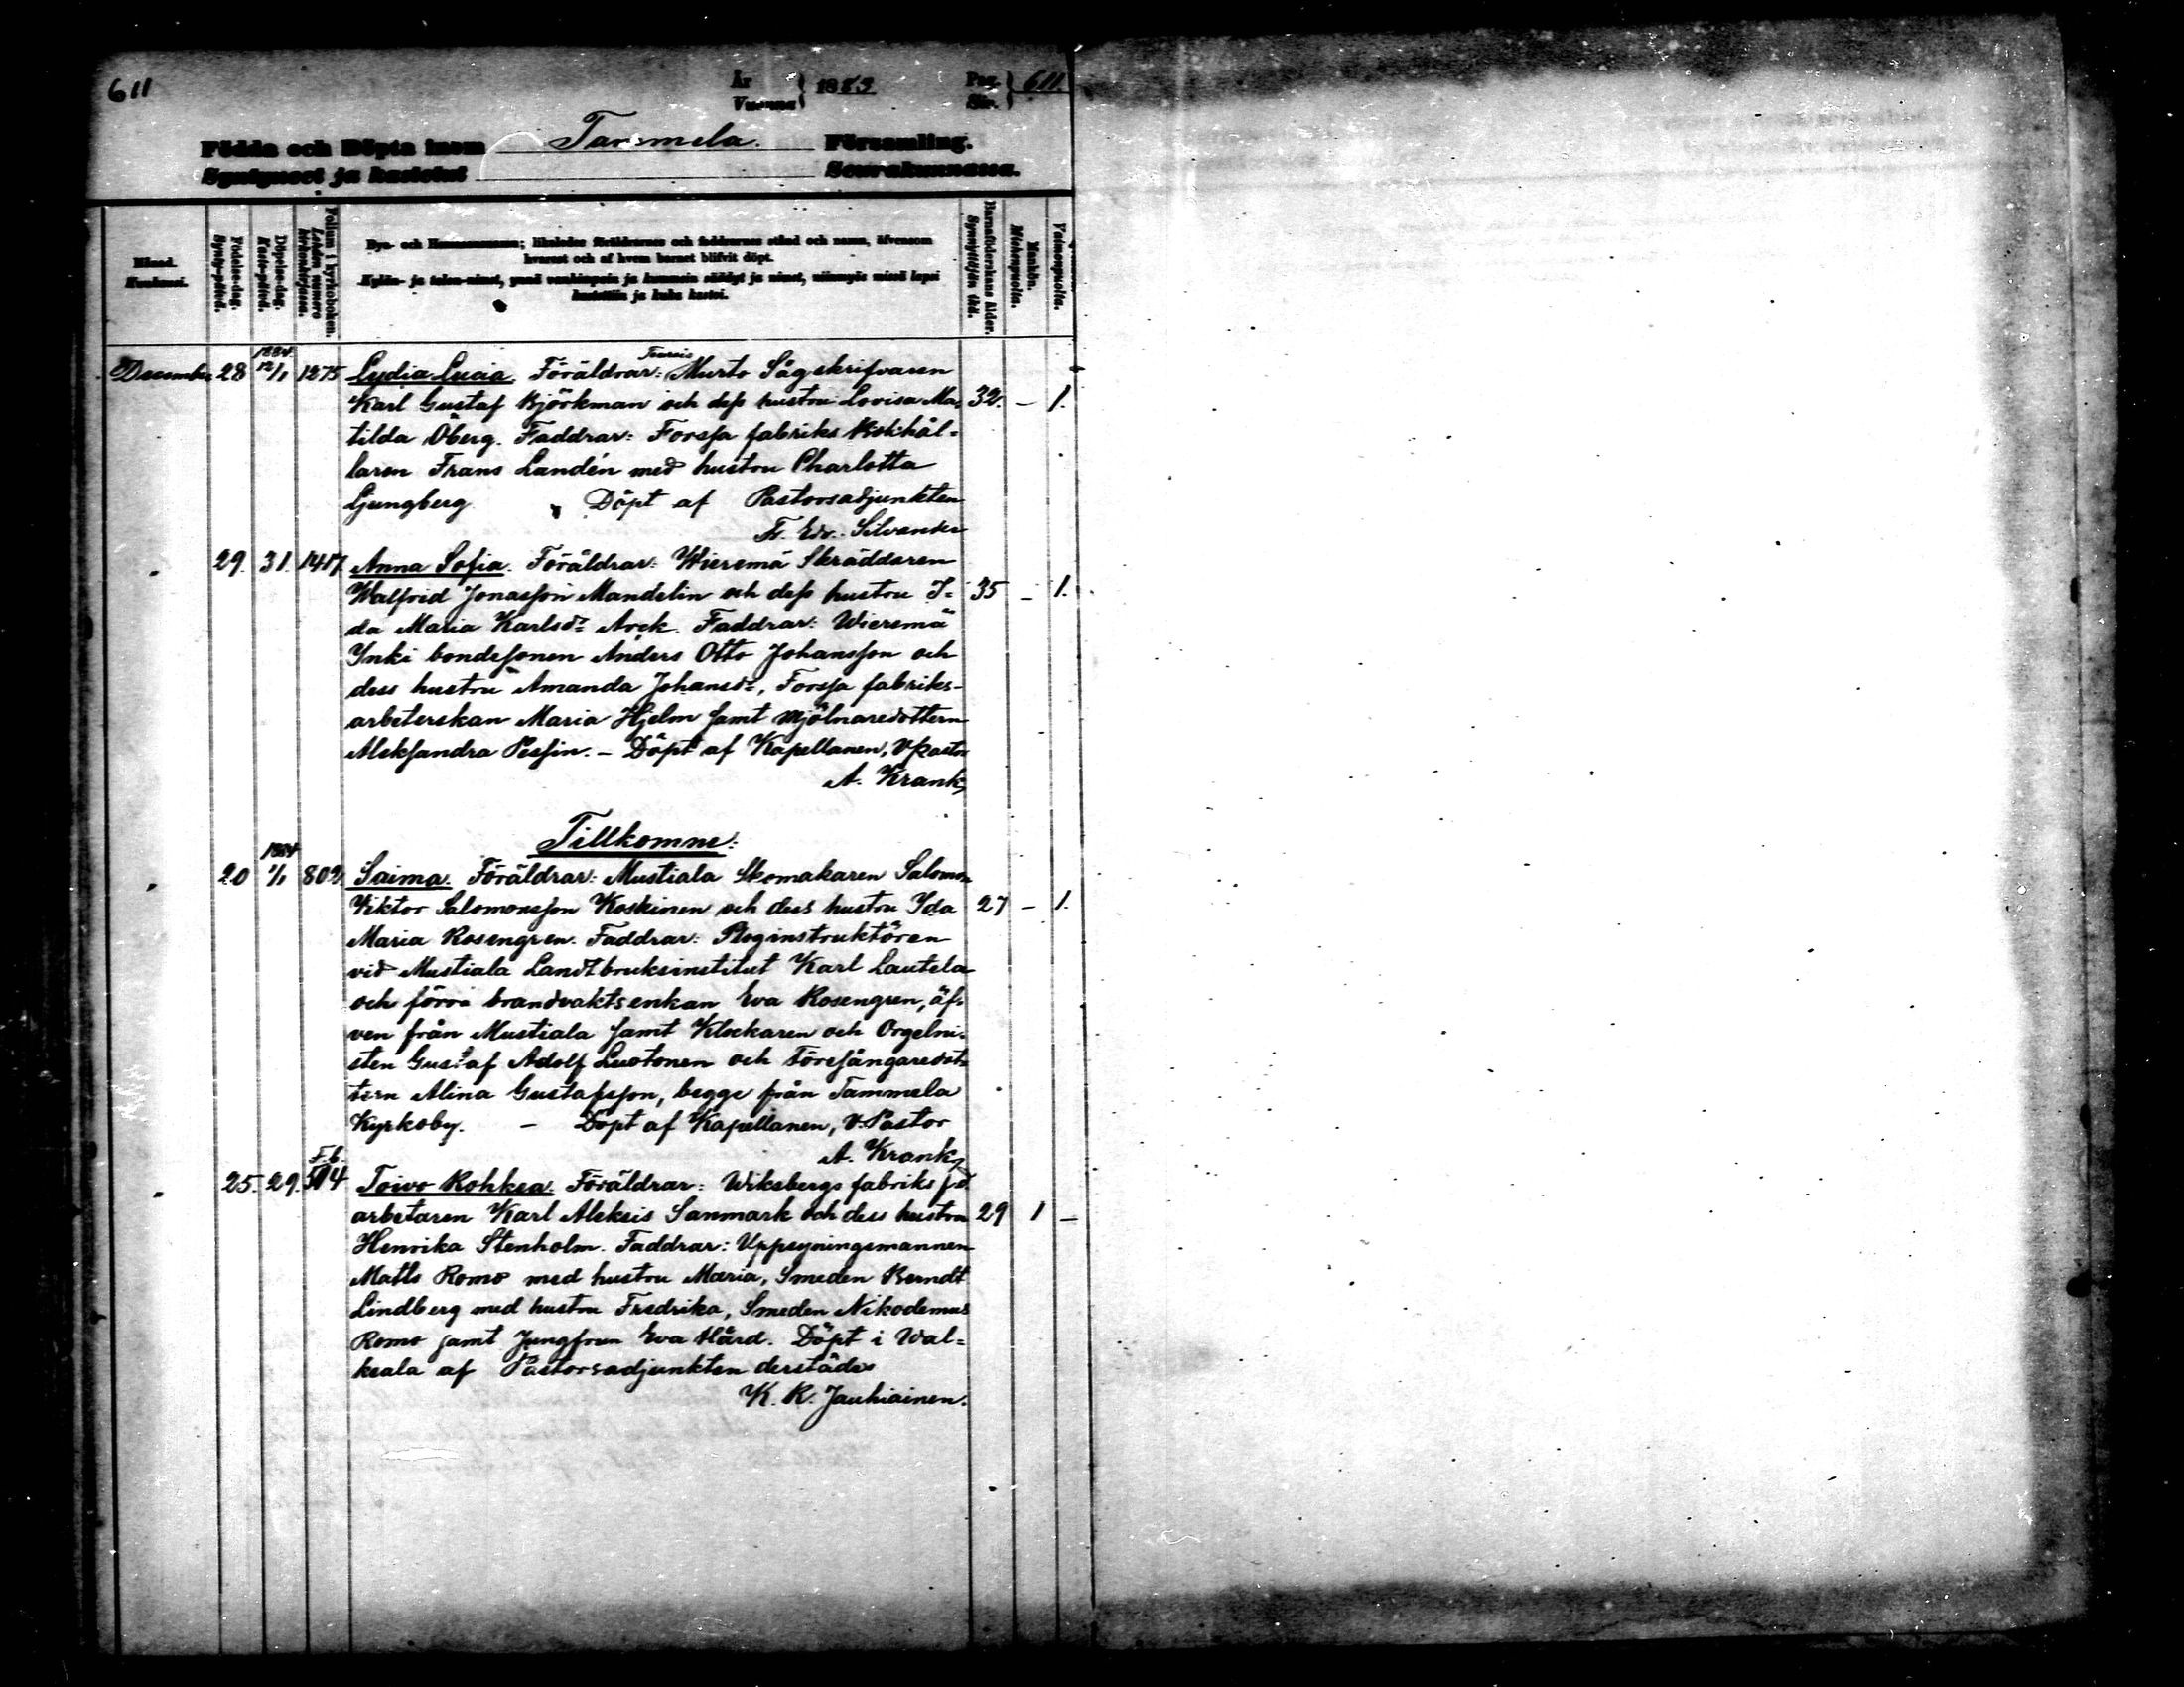 611
År
Vuonna } 1883
Pag.
Siv. } 611.
Födda och Döpta inom Tammela. Församling.
Syntyneet ja kastetut Seurakunnassa.
Månad.
Kuukausi.
Födelse-dag.
Synty-päivä.
Döpelse-dag.
Kaste-päivä.
Folium i kyrkoboken.
Lehden numero kirkonkirjassa.
Byn- och Hemmansnamn; likaledes föräldrarnes och faddrarnes stånd och namn, äfvensom
hvarest och af hvem barnet blifvit döpt.
Kylän- ja talon-nimet, ynnä vanhimpain ja kummein säädyt ja nimet, niinmyös missä lapsi
kastettiin ja kuka kastoi.
Barnaföderskans ålder.
Synnyttäjän ikä.
Mankön.
Miehenpuolta.
Vaimonpuolta.
1884.
December 28 12/1 1275 Lydia Lucia. Föräldrar: Murto Sågskrifvaren
Karl Gustaf Björkman och dess hustru Lovisa Ma- 32. – 1.
tilda Öberg. Faddrar: Forssa fabriks
laren Frans Landén med hustru Charlotta
Ljungberg Döpt af Pastorsadjunkten
Fr. Edv. Silvander
" 29. 31. 1417. Anna Sofia. Föräldrar: Wieremä Skräddaren
Walfrid Jonasson Mandelin och dess hustru I= 35 – 1.
da Maria Karlsdr Arck. Faddrar: Wieremä
Ynki bondesonen Anders Otto Johansson och
dess hustru Amanda Johansdr, Forssa fabriks-
arbeterskan Maria Hjelm samt Mjölnaredottern
Aleksandra Pessin. – Döpt af Kapellanen, V Pastor
A. Krank
Tillkomne:
1884
" 20 1/1 802. Saima. Föräldrar: Mustiala Skomakaren Salomon
Viktor Salomonsson Koskinen och dess hustru Ida 27 – 1.
Maria Rosengren. Faddrar: Ploginstruktören
vid Mustiala Landtbruksinstitut Karl Lautela
och förra brandvaktsenkan Eva Rosengren, äf-
ven från Mustiala samt Klockaren och Orgelni-
sten Gustaf Adolf Luotonen och Försångaredot-
tern Alina Gustafsson, begge från Tammela
Kyrkoby. – Döpt af Kapellanen, V. Pastor
A. Krank
F.b.
" 25. 29. 514 Toivo Rohkea. Föräldrar: Wiksbergs fabriks fd
arbetaren Karl Aleksis Sanmark och dess hustru 29 1 –
Henrika Stenholm. Faddrar: Uppsyningsmannen
Matts Romo med hustru Maria, Smeden Berndt
Lindberg med hustru Fredrika, Smeden Nikodemus
Romo samt Jungfrun Eva Hård. Döpt i Wal=
keala af Pastorsadjunkten derstädes
K. R. Jauhiainen.